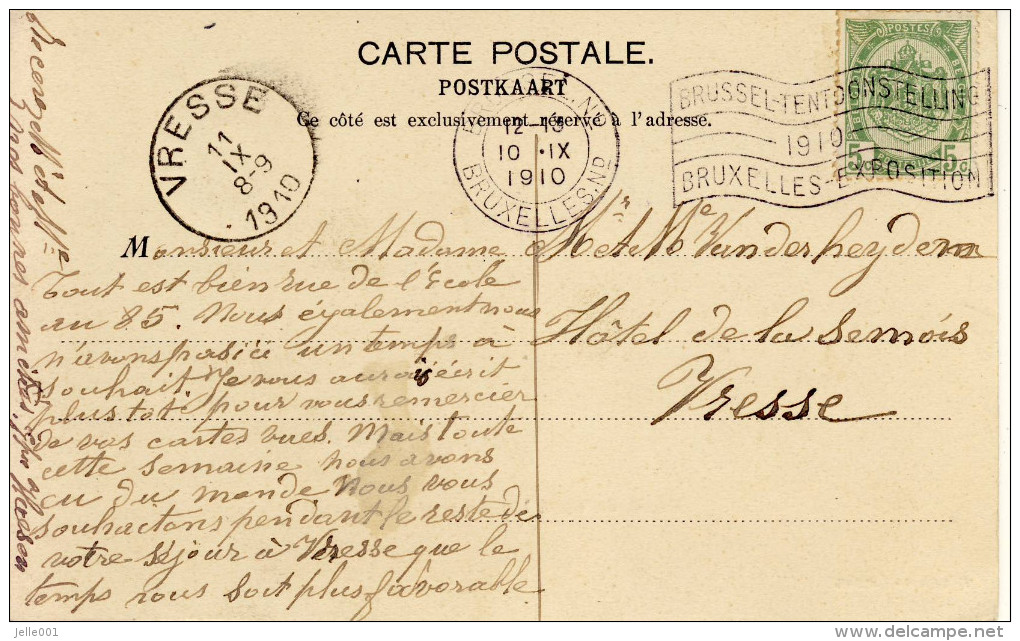 CARTE POSTALE.
POSTKAART
Ce côté est exclusivement réservé à l'adresse.
VRESSE
11
IX
8-9
1910
BRUSSEL.ND
12-13
10 IX
1910
BRUXELLES.ND
BRUSSEL-TENTOONSTELLING
1910
BRUXELLES-EXPOSITION
POSTES
5c 5c
Monsieur et Madame
Tout est bien rue de l'École
au 85. Nous également nous
n'avons pas ici un temps à
souhait. Je vous aurais écrit
plus tôt pour vous remercier
de vos cartes vues. Mais toute
cette semaine nous avons
eu du monde Nous vous
souhaitons pendant le reste de
votre séjour à Vresse que le
temps vous soit plus favorable
Mr et Me Vanderheyden
Hôtel de la Semois
Vresse
Recevez Mr et Me
nos bonnes amitiés
jelle001
delcampe.net